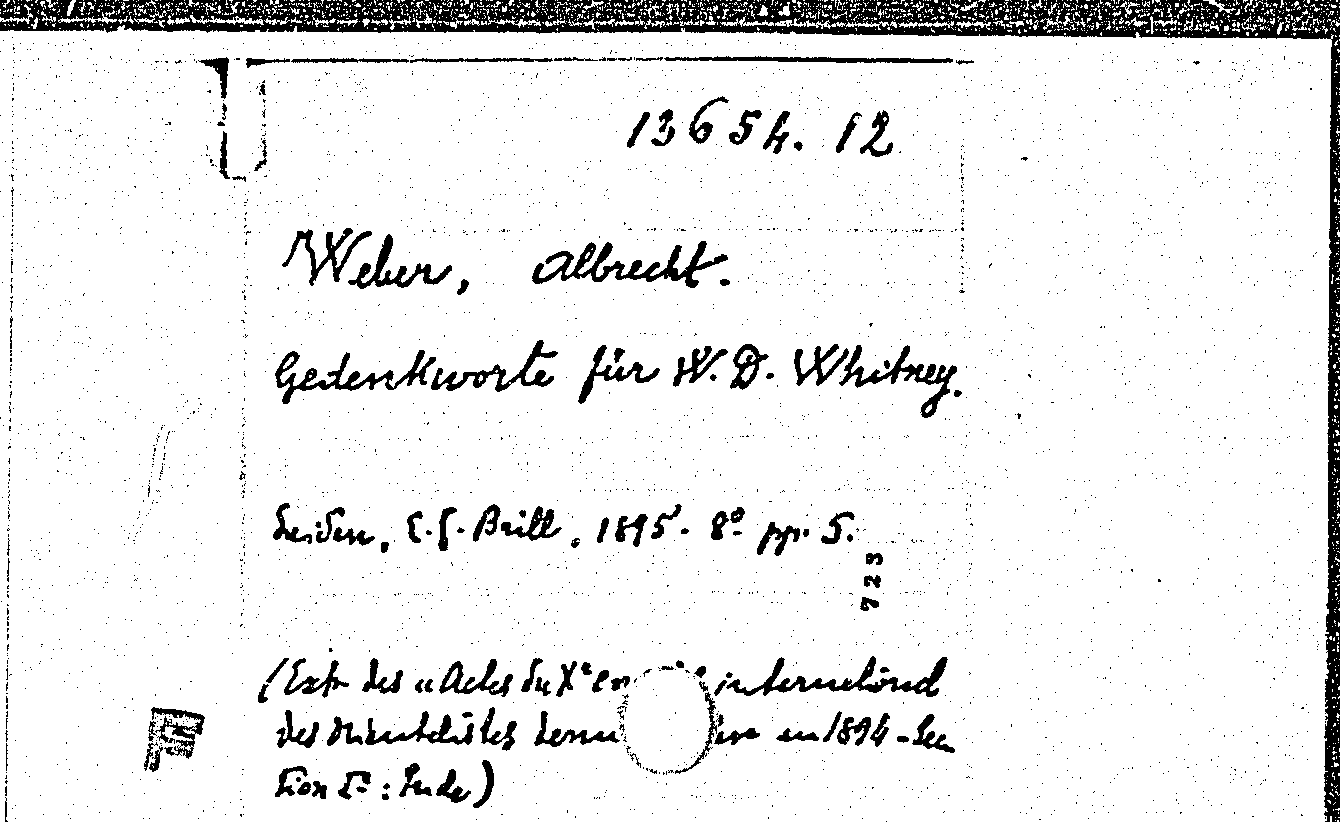 13654.12
Weber, Albrecht.
Gedenkworte für W. D. Whitney.
Leiden, E. J. Brill, 1895. 8º pp. 5.
723
(Extr. des "Actes du Xe internatioṇal
des Orientalistes tenu en 1894 - Sec
tion Iº : Inde)